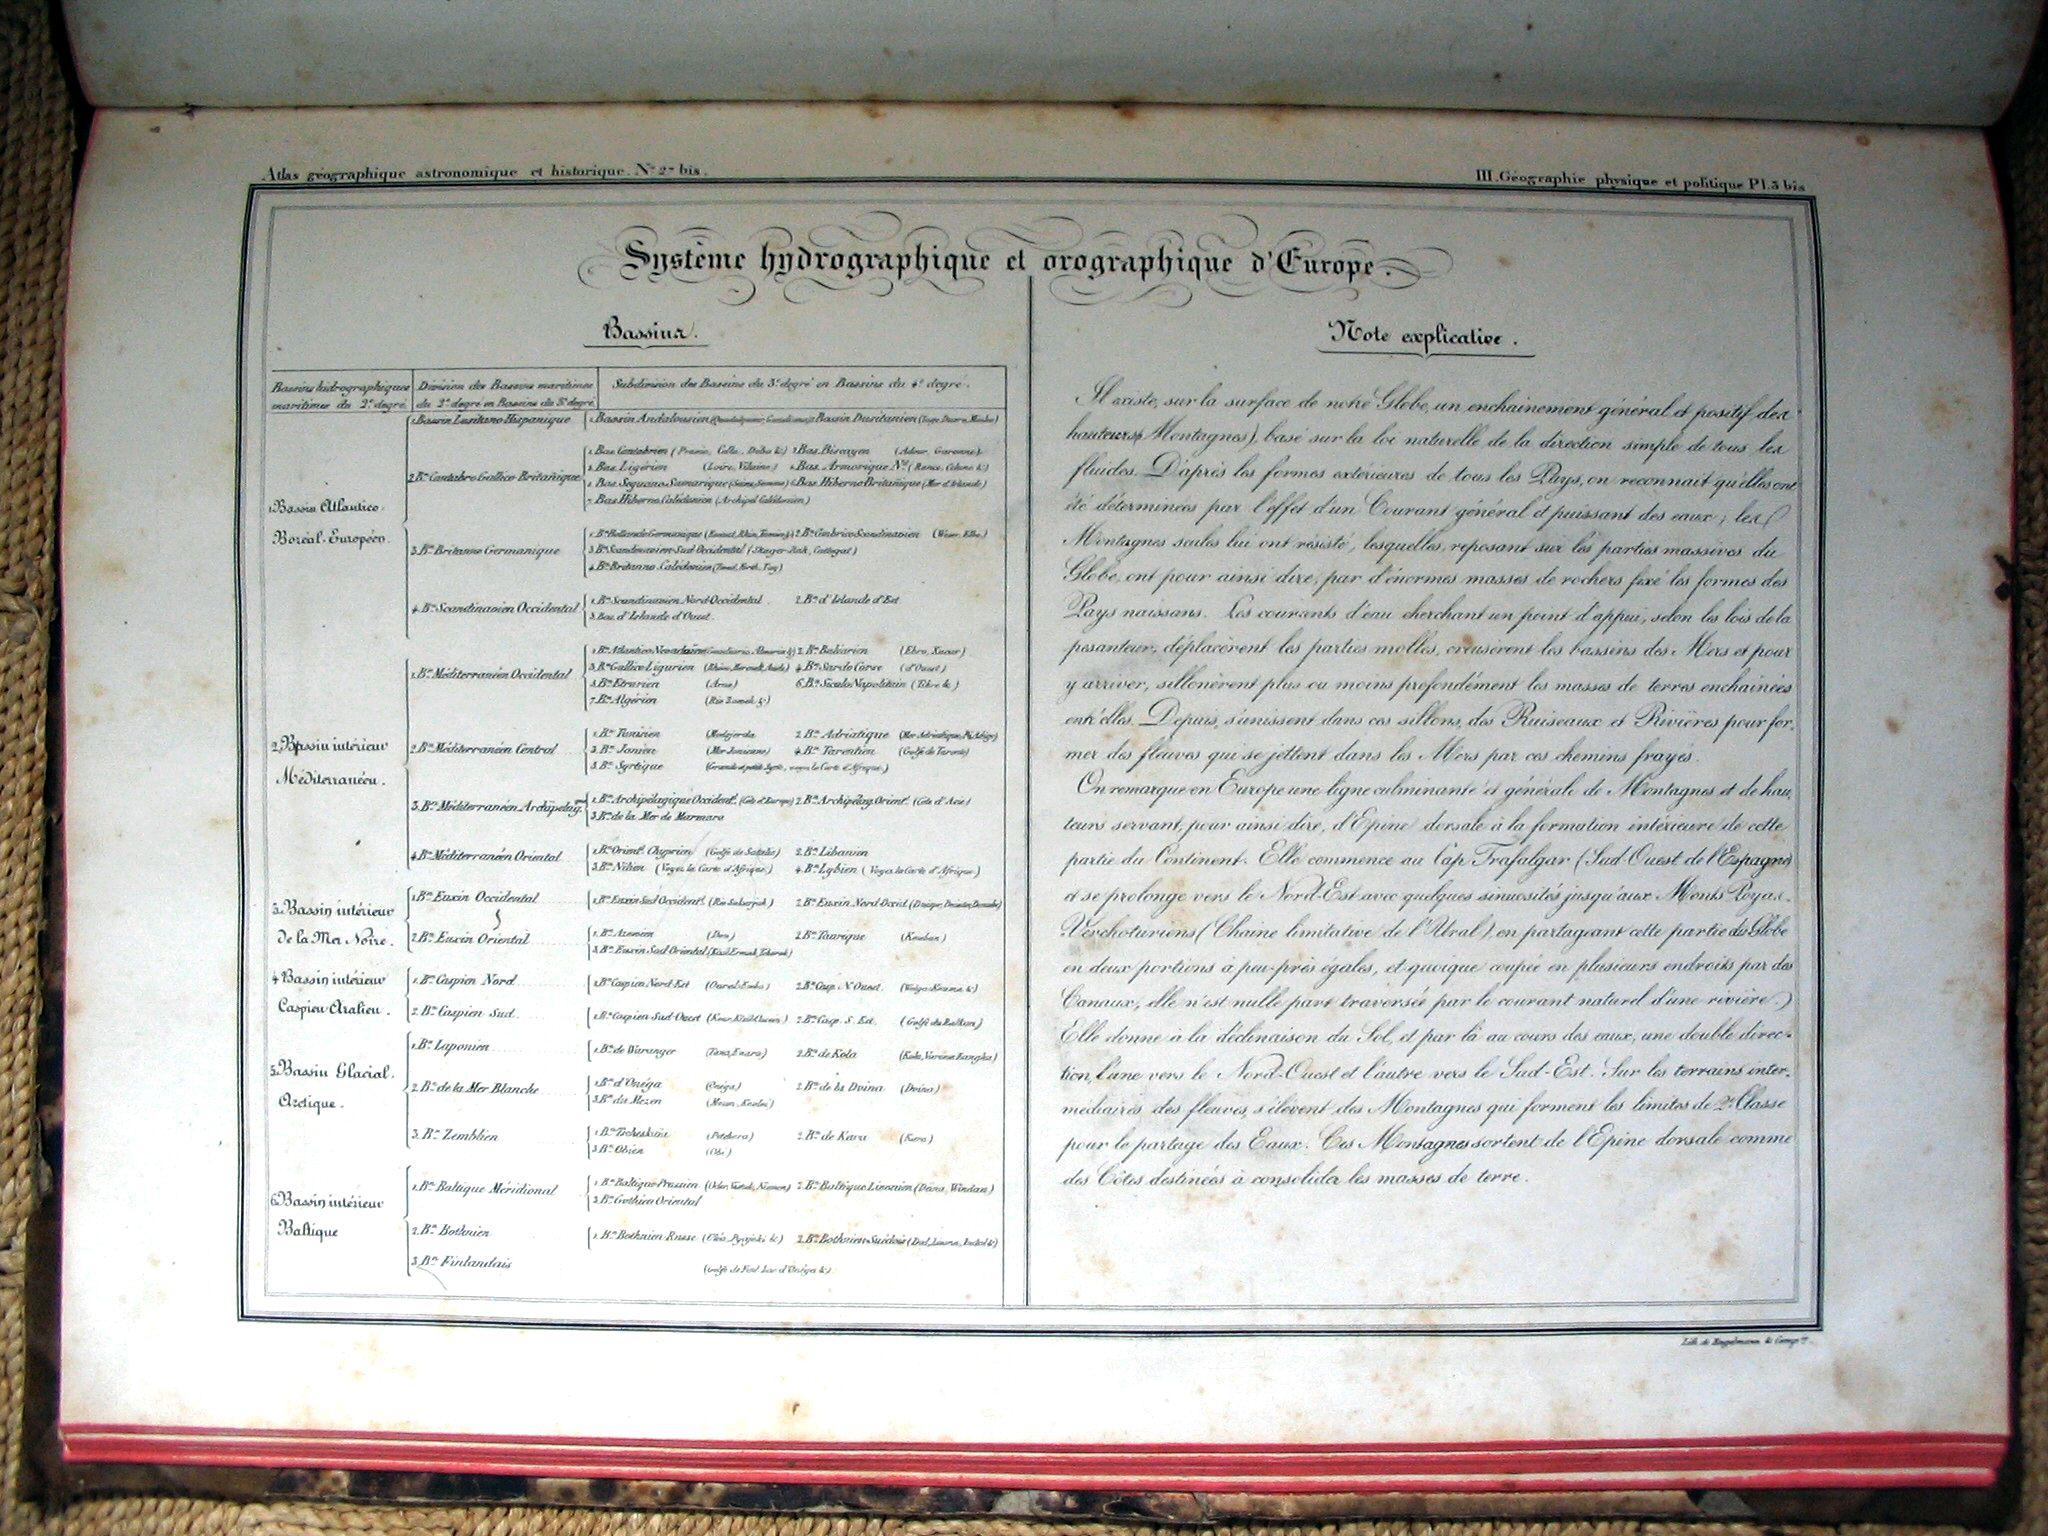 Atlas géographique astronomique et historique. N° 2 bis.
III. Géographie physique et politique Pl. 3 bis
Système hydrographique et orographique d'Europe.
Bassins.
Bassins hidrographiques maritimes du 2e degré.
Division des Bassins maritimes du 2e degré en Bassins du 3e degré
Subdivision des Bassins du 3e degré en Bassins du 4e degré.
1. Bassin Atlantico-
Boréal-Européen.
1. Bassin Lusitano Hispanique
1. Bassin Andalousien 2. Bassin Dusitanien (Tage, Duero, Minho)
2. Bn Cantabro Gallico Britañique
1. Bas. Cantabrien 2. Bas. Biscayen (Adour, Garonne)
3. Bas. Ligérien (Loire, Vilaine) 4. Bas. Armorique Nd
5. Bas. Sequano Samarique (Seine, Somme) 6. Bas. Hiberno Britañique (Mer d'Irlande)
7. Bas. Hiberno Calédonien (Archipel Calédonien)
3. Bn Britanno Germanique
1. Bn Hollando Germanique 2. Bn Cimbrico Scandinavien (Weser, Elbe)
3. Bn Scandinavien Sud Occidental (Skager-Rak, Cattegat)
4. Bn Britanno Calédonien
4. Bn Scandinavien Occidental
1. Bn Scandinavien Nord-Occidental 2. Bn d'Islande d'Est
3. Bas. d'Islande d'Ouest.
2. Bassin intérieur
Méditerranéen.
1. Bn Méditerranéen Occidental
1. Bn Atlantico Nevadnien 2. Bn Baléarien (Ebro, Xucar)
3. Bn Gallico Ligurien 4. Bn Sardo Corse (d'Ouest)
5. Bn Etrurien (Arno) 6. Bn Siculo Napolitain (Tibre &)
7. Bn Algérien
2. Bn Méditerranéen Central
1. Bn Tunisien (Medgerda 2. Bn Adriatique
3. Bn Ionien (Mer Ionienne) 4. Bn Tarentien (Golfe de Tarente)
5. Bn Syrtique
3. Bn Méditerranéen Archipélag
1. Bn Archipélagique Occident. (Côte d'Europe) 2. Bn Archipélag. Orient. (Côte d'Asie)
3. Bn de la Mer de Marmara
4. Bn Méditerranéen Oriental
1. Bn Orient. Chyprien (Golfe de Satalie) 2. Bn Libanien
3. Bn Nilien (Voyez la Carte d'Afrique) 4. Bn Lybien (Voyez la Carte d'Afrique)
3. Bassin intérieur
de la Mer Noire.
1. Bn Euxin Occidental
1. Bn Euxin Sud Occident. 2. Bn Euxin Nord Occid.
2. Bn Euxin Oriental
1. Bn Azowien (Don) 2. Bn Taurique (Kouban)
3. Bn Euxin Sud Oriental
4. Bassin intérieur
Caspien Aralien.
1. Bn Caspien Nord
1. Bn Caspien Nord-Est 2. Bn Casp. N. Ouest.
2. Bn Caspien Sud
1. Bn Caspien Sud-Ouest 2. Bn Casp. S. Est. (Golfe du Balkan)
5. Bassin Glacial.
Arctique.
1. Bn Laponien
1. Bn de Waranger (Tana, Enara) 2. Bn de Kola
2. Bn de la Mer Blanche
1. Bn d'Onéga (Onéga) 2. Bn de la Dvina (Dvina)
3. Bn du Mezen
3. Bn Zemblien
1. Bn Tscheskaïa (Petchora) 2. Bn de Kara (Kara)
3. Bn Obien (Obi)
6. Bassin intérieur
Baltique
1. Bn Baltique Méridional
1. Bn Baltique Prussien 2. Bn Baltique Livonien (Duna, Windau)
3. Bn Gothien Oriental
2. Bn Bothnien
1. Bn Bothnien Russe 2. Bn Bothnien Suédois
3. Bn Finlandais
Note explicative.
Il existe, sur la surface de notre Globe, un enchainement général et positif des
hauteurs (Montagnes), basé sur la loi naturelle de la direction simple de tous les
fluides. D'après les formes extérieures de tous les Pays, on reconnait qu'elles ont
été déterminées par l'effet d'un Courant général et puissant des eaux; les
Montagnes seules lui ont résisté, lesquelles, reposant sur les parties massives du
Globe, ont pour ainsi dire, par d'énormes masses de rochers fixé les formes des
Pays naissans. Les courants d'eau cherchant un point d'appui, selon les lois de la
pesanteur, déplacèrent les parties molles, creusèrent les bassins des Mers et pour
y arriver, sillonèrent plus ou moins profondément les masses de terres enchainées
entr'elles. Depuis, s'unissent dans ces sillons, des Ruiseaux et Rivières pour for-
mer des fleuves qui se jettent dans les Mers par ces chemins frayés.
On remarque en Europe une ligne culminante et générale de Montagnes et de hau-
teurs servant, pour ainsi dire, d'Epine dorsale à la formation intérieure de cette
partie du Continent. Elle commence au Cap Trafalgar (Sud-Ouest de l'Espagne)
et se prolonge vers le Nord-Est avec quelques sinuosités jusqu'aux Monts Poyas-
Verchoturiens (Chaine limitative de l'Ural), en partageant cette partie du Globe
en deux portions à peu-près égales, et quoique coupée en plusieurs endroits par des
Canaux, elle n'est nulle part traversée par le courant naturel d'une rivière.)
Elle donne à la déclinaison du Sol, et par là au cours des eaux, une double direc-
tion, l'une vers le Nord-Ouest et l'autre vers le Sud-Est. Sur les terrains inter-
médiaires des fleuves, s'élèvent des Montagnes qui forment les limites de 2e Classe
pour le partage des Eaux. Ces Montagnes sortent de l'Epine dorsale comme
des Côtes destinées à consolider les masses de terre.
Lith. de Engelmann & Comp.ie